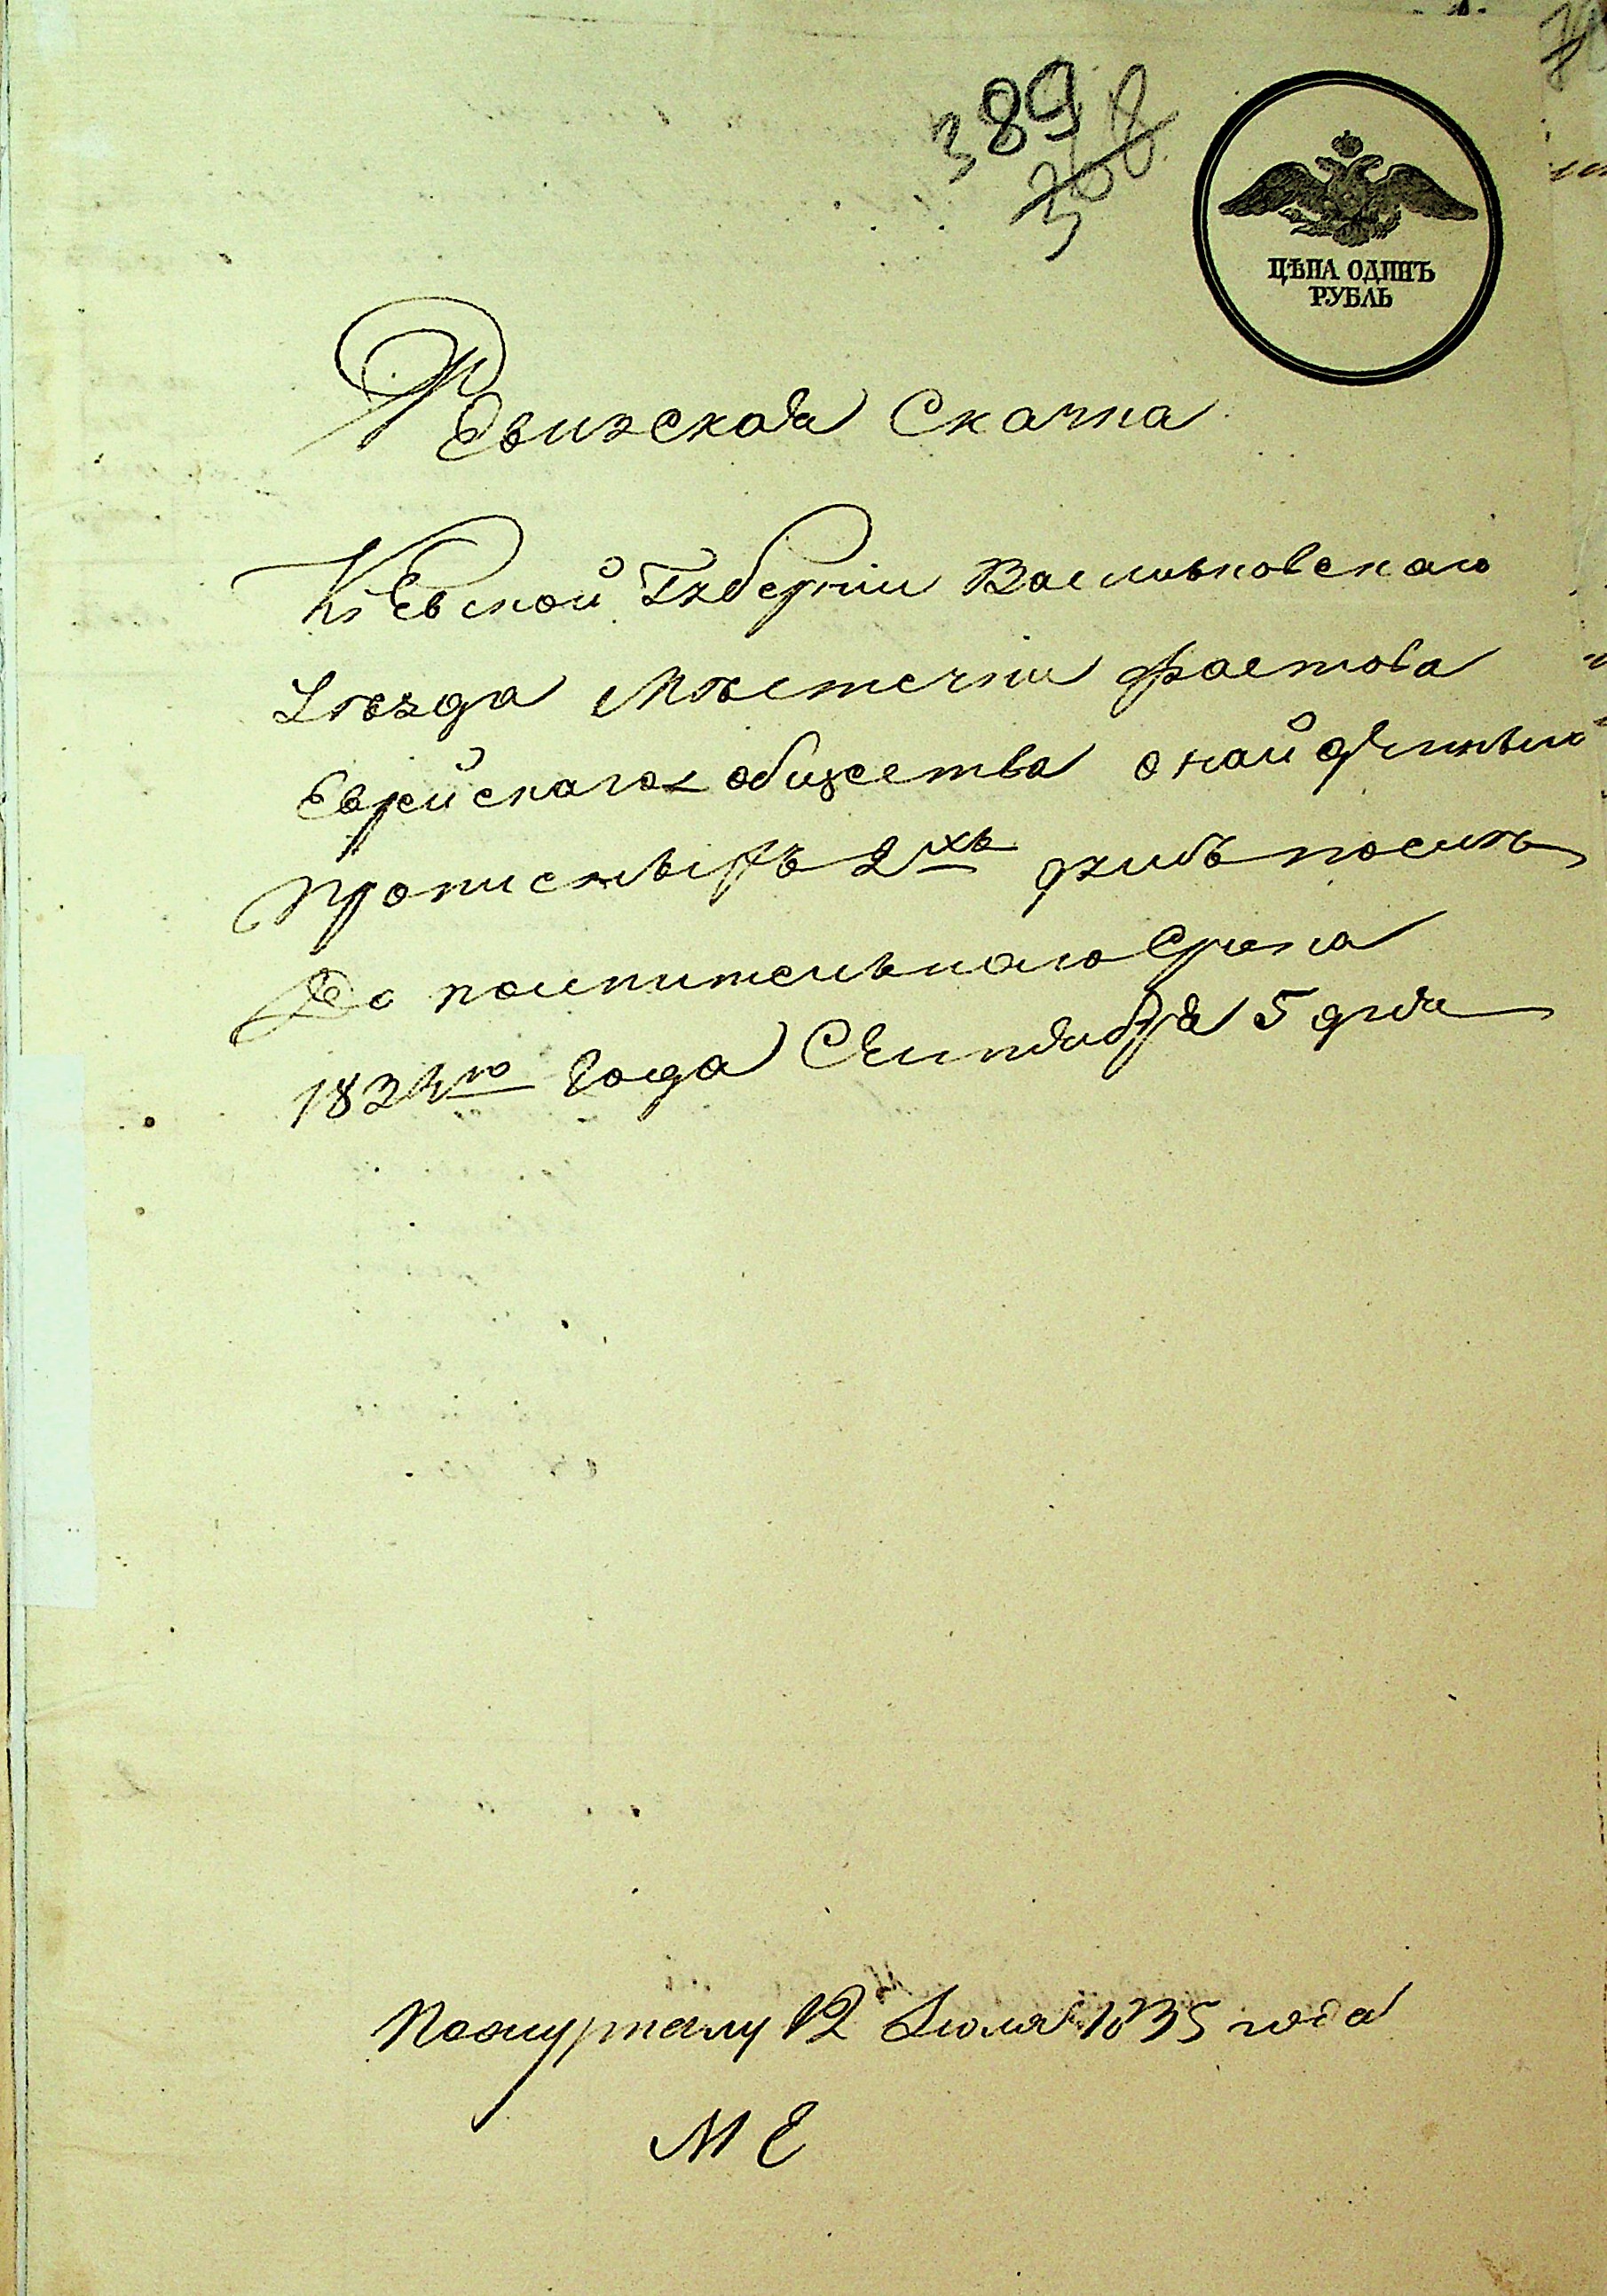 389
368
ЦѢНА ОДИНЪ
РУБЛЬ
Ревизская Скачка
Кіевской Губерніи Васильковскаго
Уѣзда Мѣстечки фастова
Еврейскаго общества о найденных
прописныхъ 2хъ душъ после
До полнительнаго Срока
1834го Года Сентября 5 дня
Пожурналу 12 Іюля 1835 года